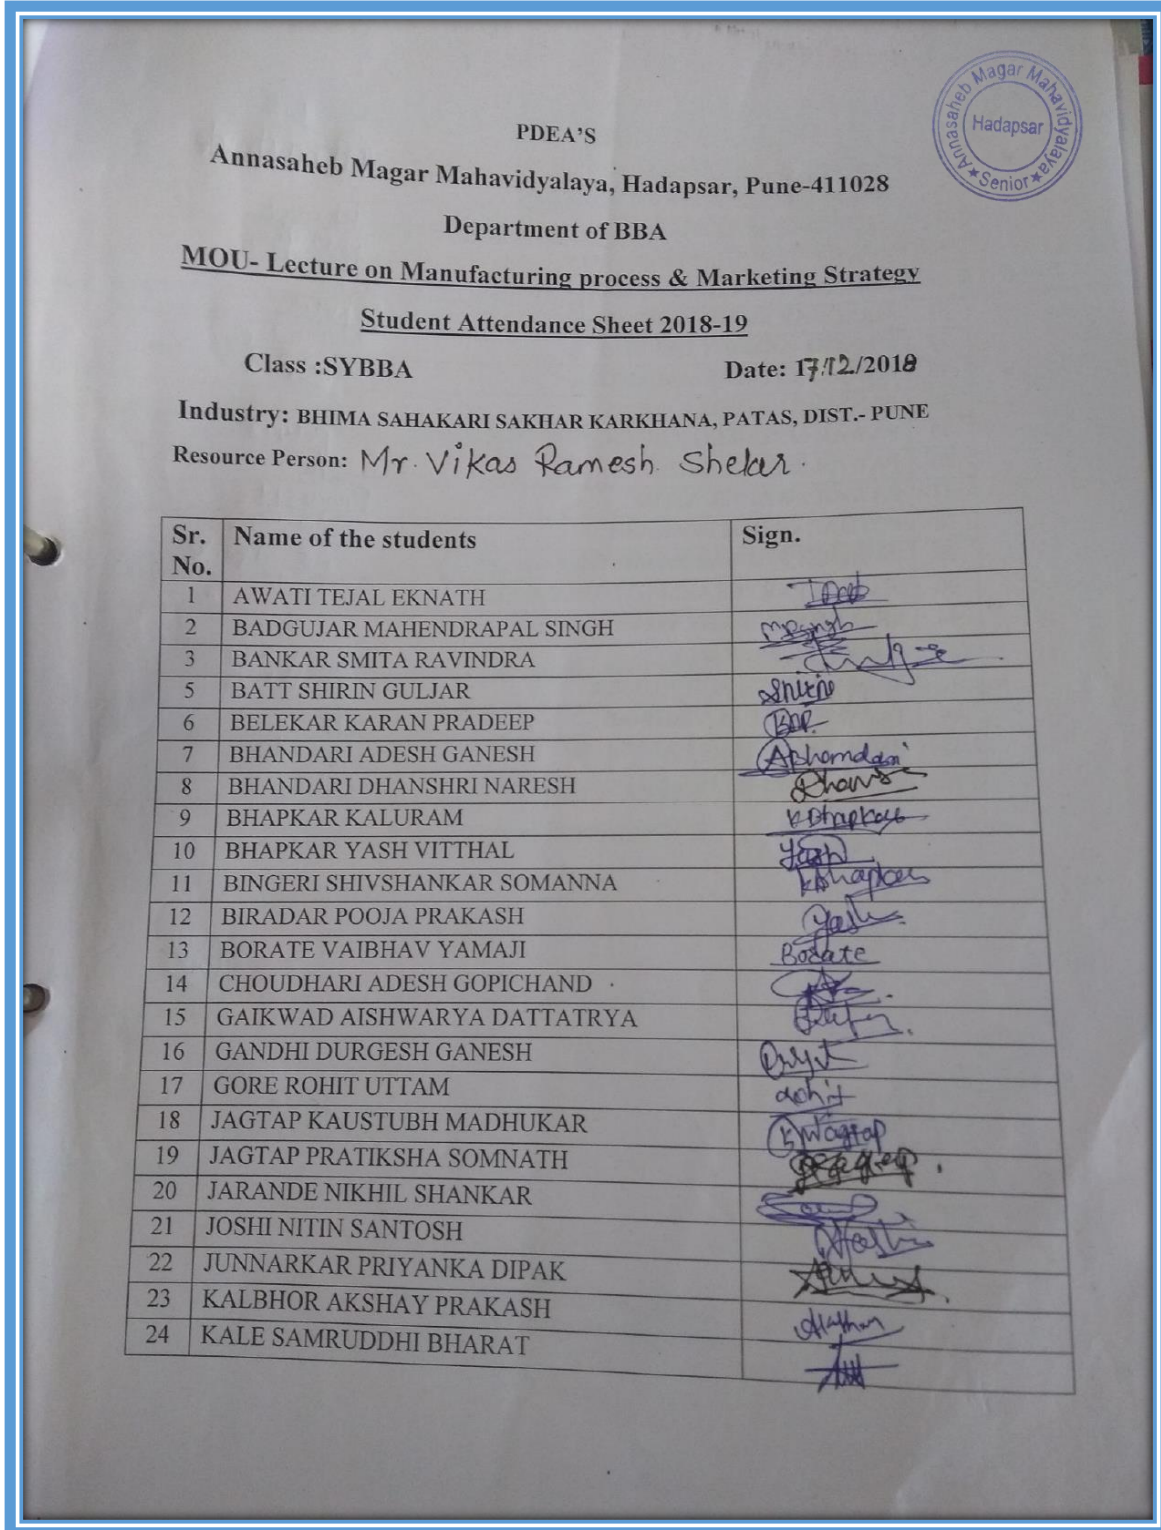 Annasaheb Magar Mahavidyalaya
Hadapsar
★ Senior ★
PDEA'S
Annasaheb Magar Mahavidyalaya, Hadapsar, Pune-411028
Department of BBA
MOU- Lecture on Manufacturing process & Marketing Strategy
Student Attendance Sheet 2018-19
Class :SYBBA Date: 17/12/2018
Industry: BHIMA SAHAKARI SAKHAR KARKHANA, PATAS, DIST.- PUNE
Resource Person: Mr. Vikas Ramesh Shelar.
Sr. No. Name of the students Sign.
1 AWATI TEJAL EKNATH
2 BADGUJAR MAHENDRAPAL SINGH
3 BANKAR SMITA RAVINDRA
5 BATT SHIRIN GULJAR
6 BELEKAR KARAN PRADEEP
7 BHANDARI ADESH GANESH ABhandari
8 BHANDARI DHANSHRI NARESH
9 BHAPKAR KALURAM KBhapkar
10 BHAPKAR YASH VITTHAL Yash
11 BINGERI SHIVSHANKAR SOMANNA KBhapkar
12 BIRADAR POOJA PRAKASH Yash
13 BORATE VAIBHAV YAMAJI Borate
14 CHOUDHARI ADESH GOPICHAND
15 GAIKWAD AISHWARYA DATTATRYA
16 GANDHI DURGESH GANESH
17 GORE ROHIT UTTAM Rohit
18 JAGTAP KAUSTUBH MADHUKAR KMJagtap
19 JAGTAP PRATIKSHA SOMNATH
20 JARANDE NIKHIL SHANKAR
21 JOSHI NITIN SANTOSH
22 JUNNARKAR PRIYANKA DIPAK
23 KALBHOR AKSHAY PRAKASH
24 KALE SAMRUDDHI BHARAT